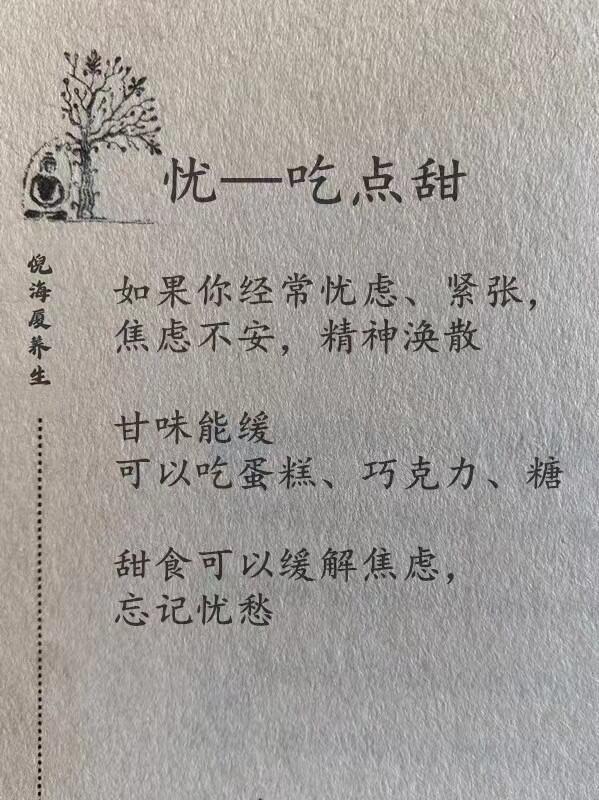 忧—吃点甜
倪海厦养生
如果你经常忧虑、紧张，
焦虑不安，精神涣散
甘味能缓
可以吃蛋糕、巧克力、糖
甜食可以缓解焦虑，
忘记忧愁